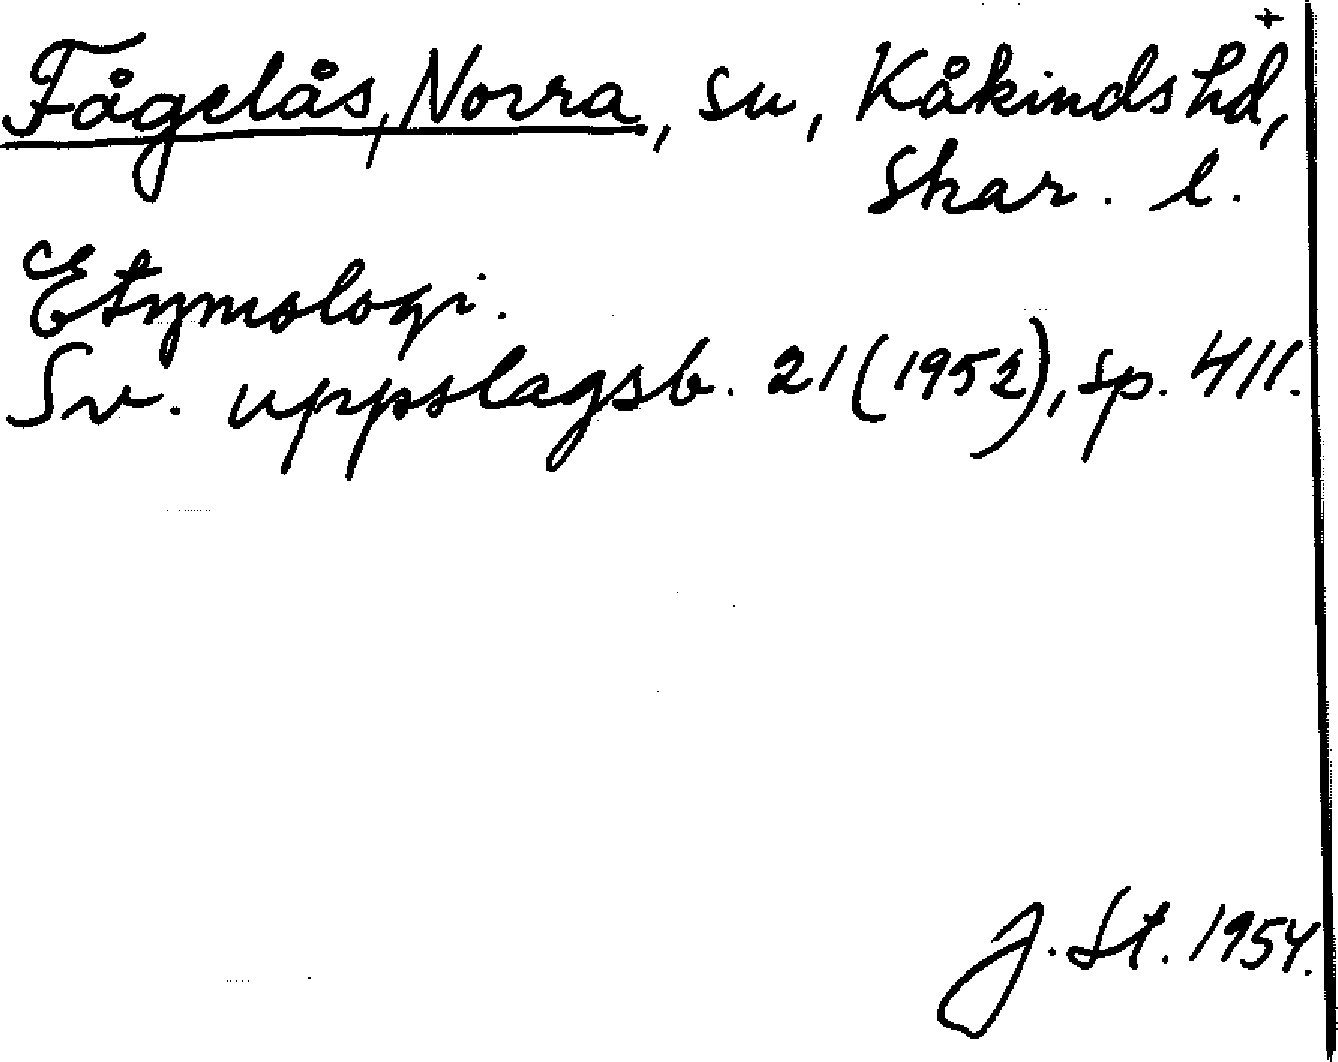 +
Fågelås, Norra, sn, Kåkinds hd,
Skar. l.
Etymologi.
Sv. uppslagsb. 21 (1952), sp. 411.
J. St. 1954.